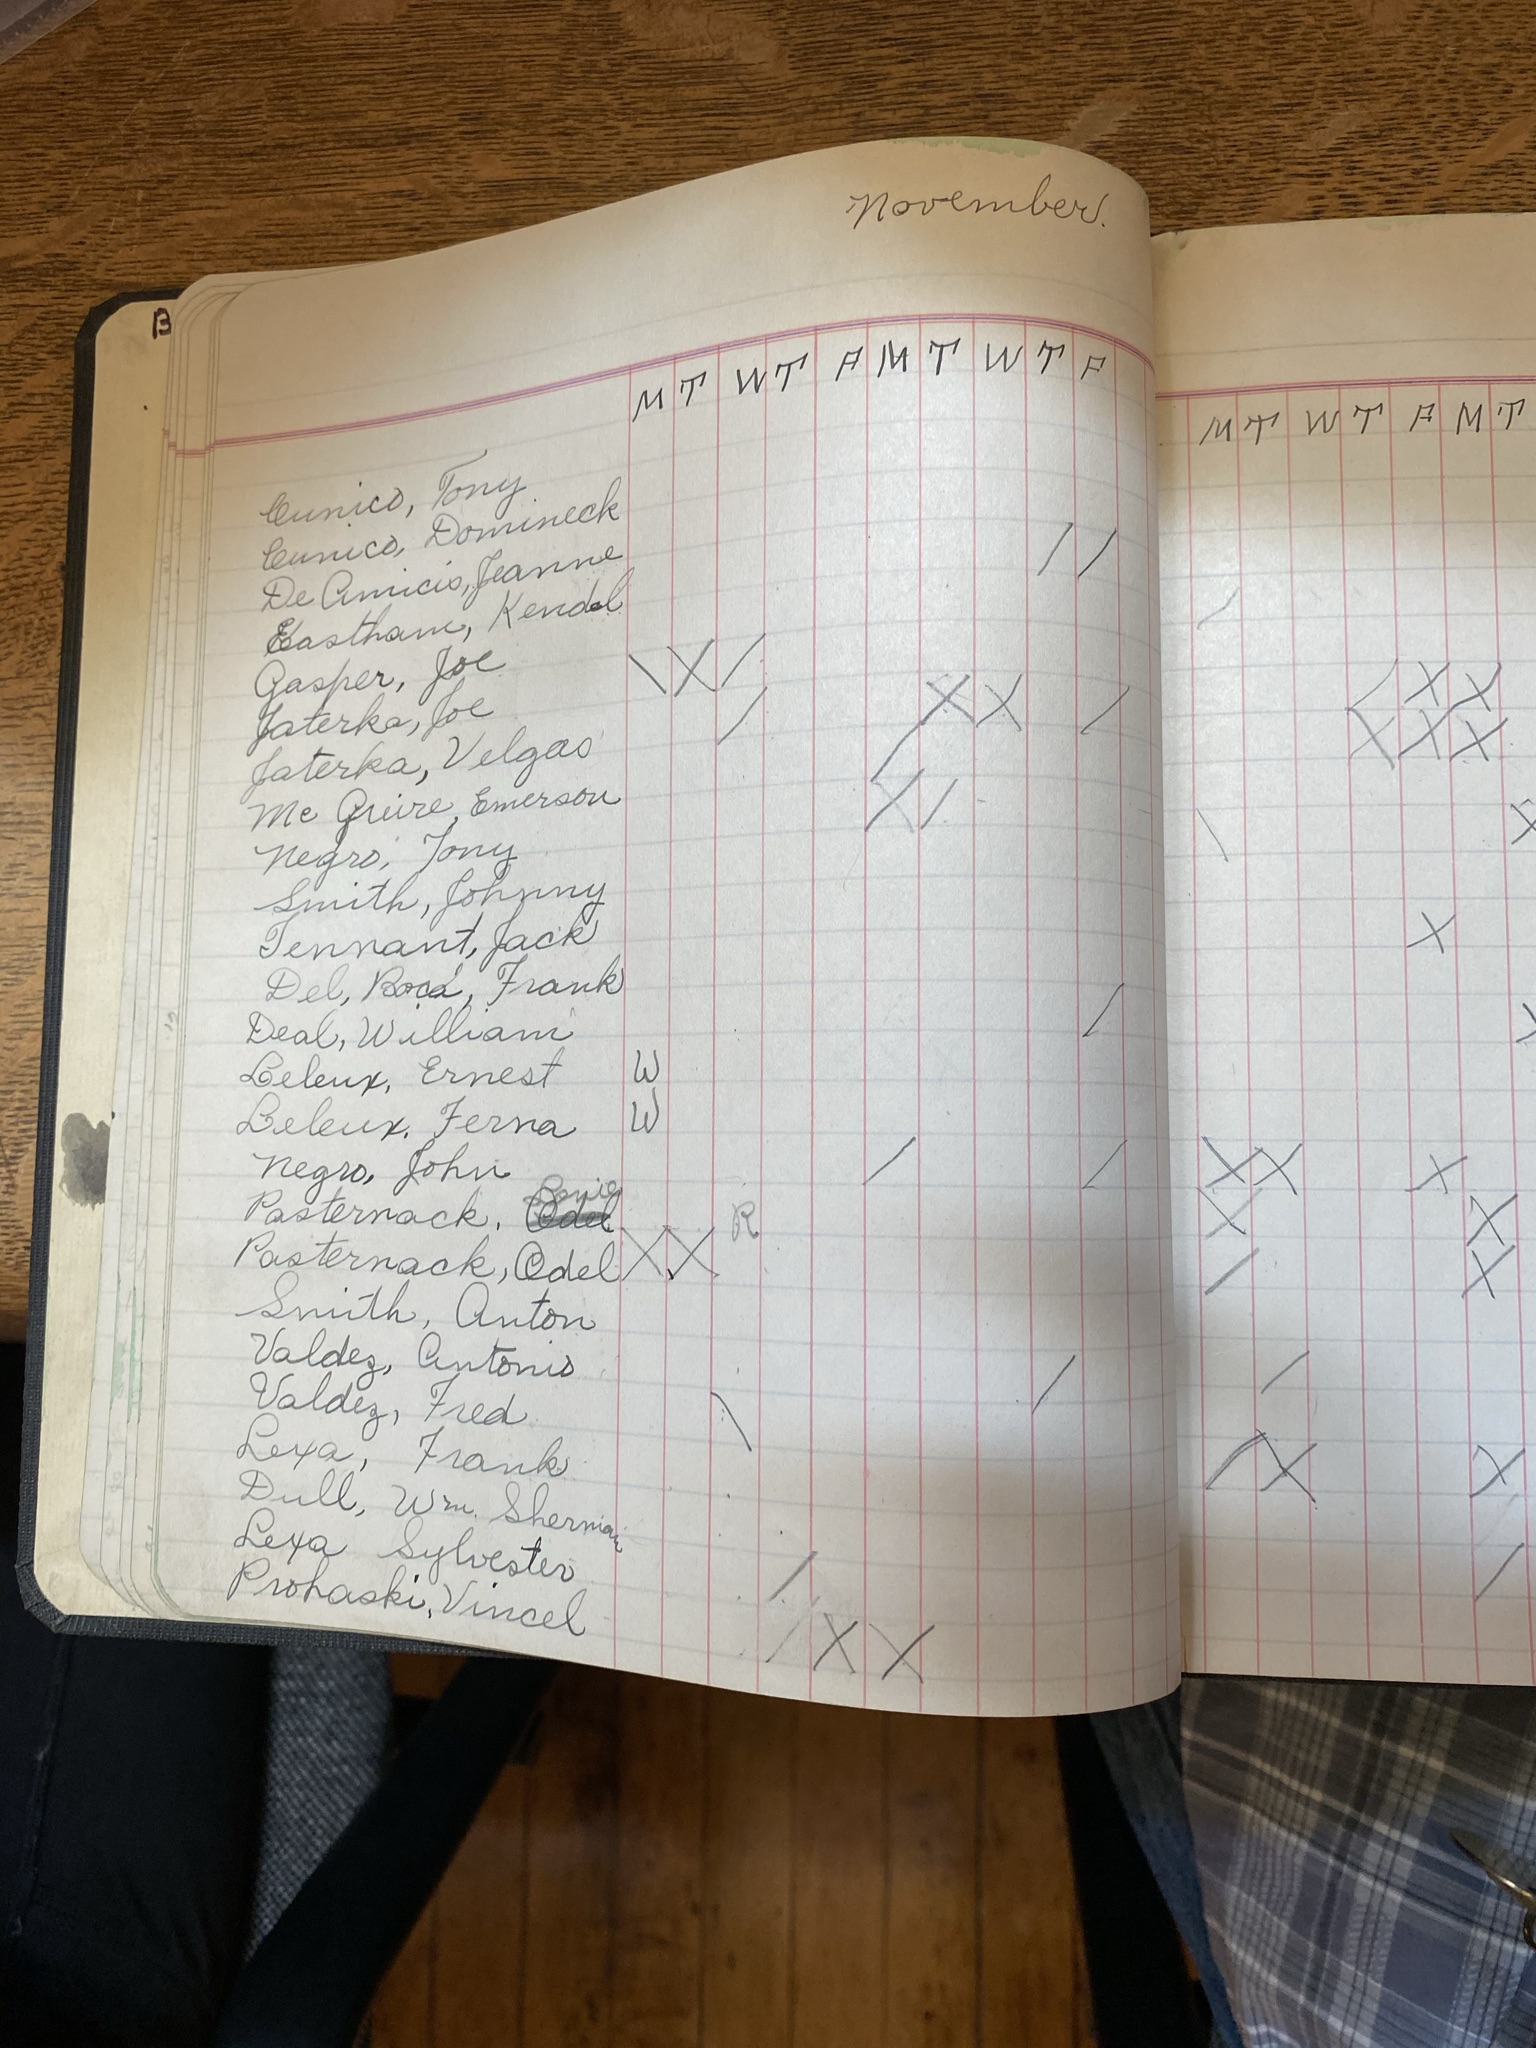 November.
B
M T W T F M T W T F
M T W T F M T
Cunico, Tony
Cunico, Domineck
De Amicis, Jeanne
Eastham, Kendel
Gasper, Joe
Jaterka, Joe
Jaterka, Velgas
Mc Guire, Emerson
Negro, Tony
Smith, Johnny
Tennant, Jack
Del, Frank
Deal, William
Leleux, Ernest W
Leleux, Ferna W
Negro, John
Pasternack, Odel R
Pasternack, Odel X X
Smith, Anton
Valdez, Antonio
Valdez, Fred
Lexa, Frank
Dull, Wm. Sherman
Lexa Sylvester
Prohaski, Vincel